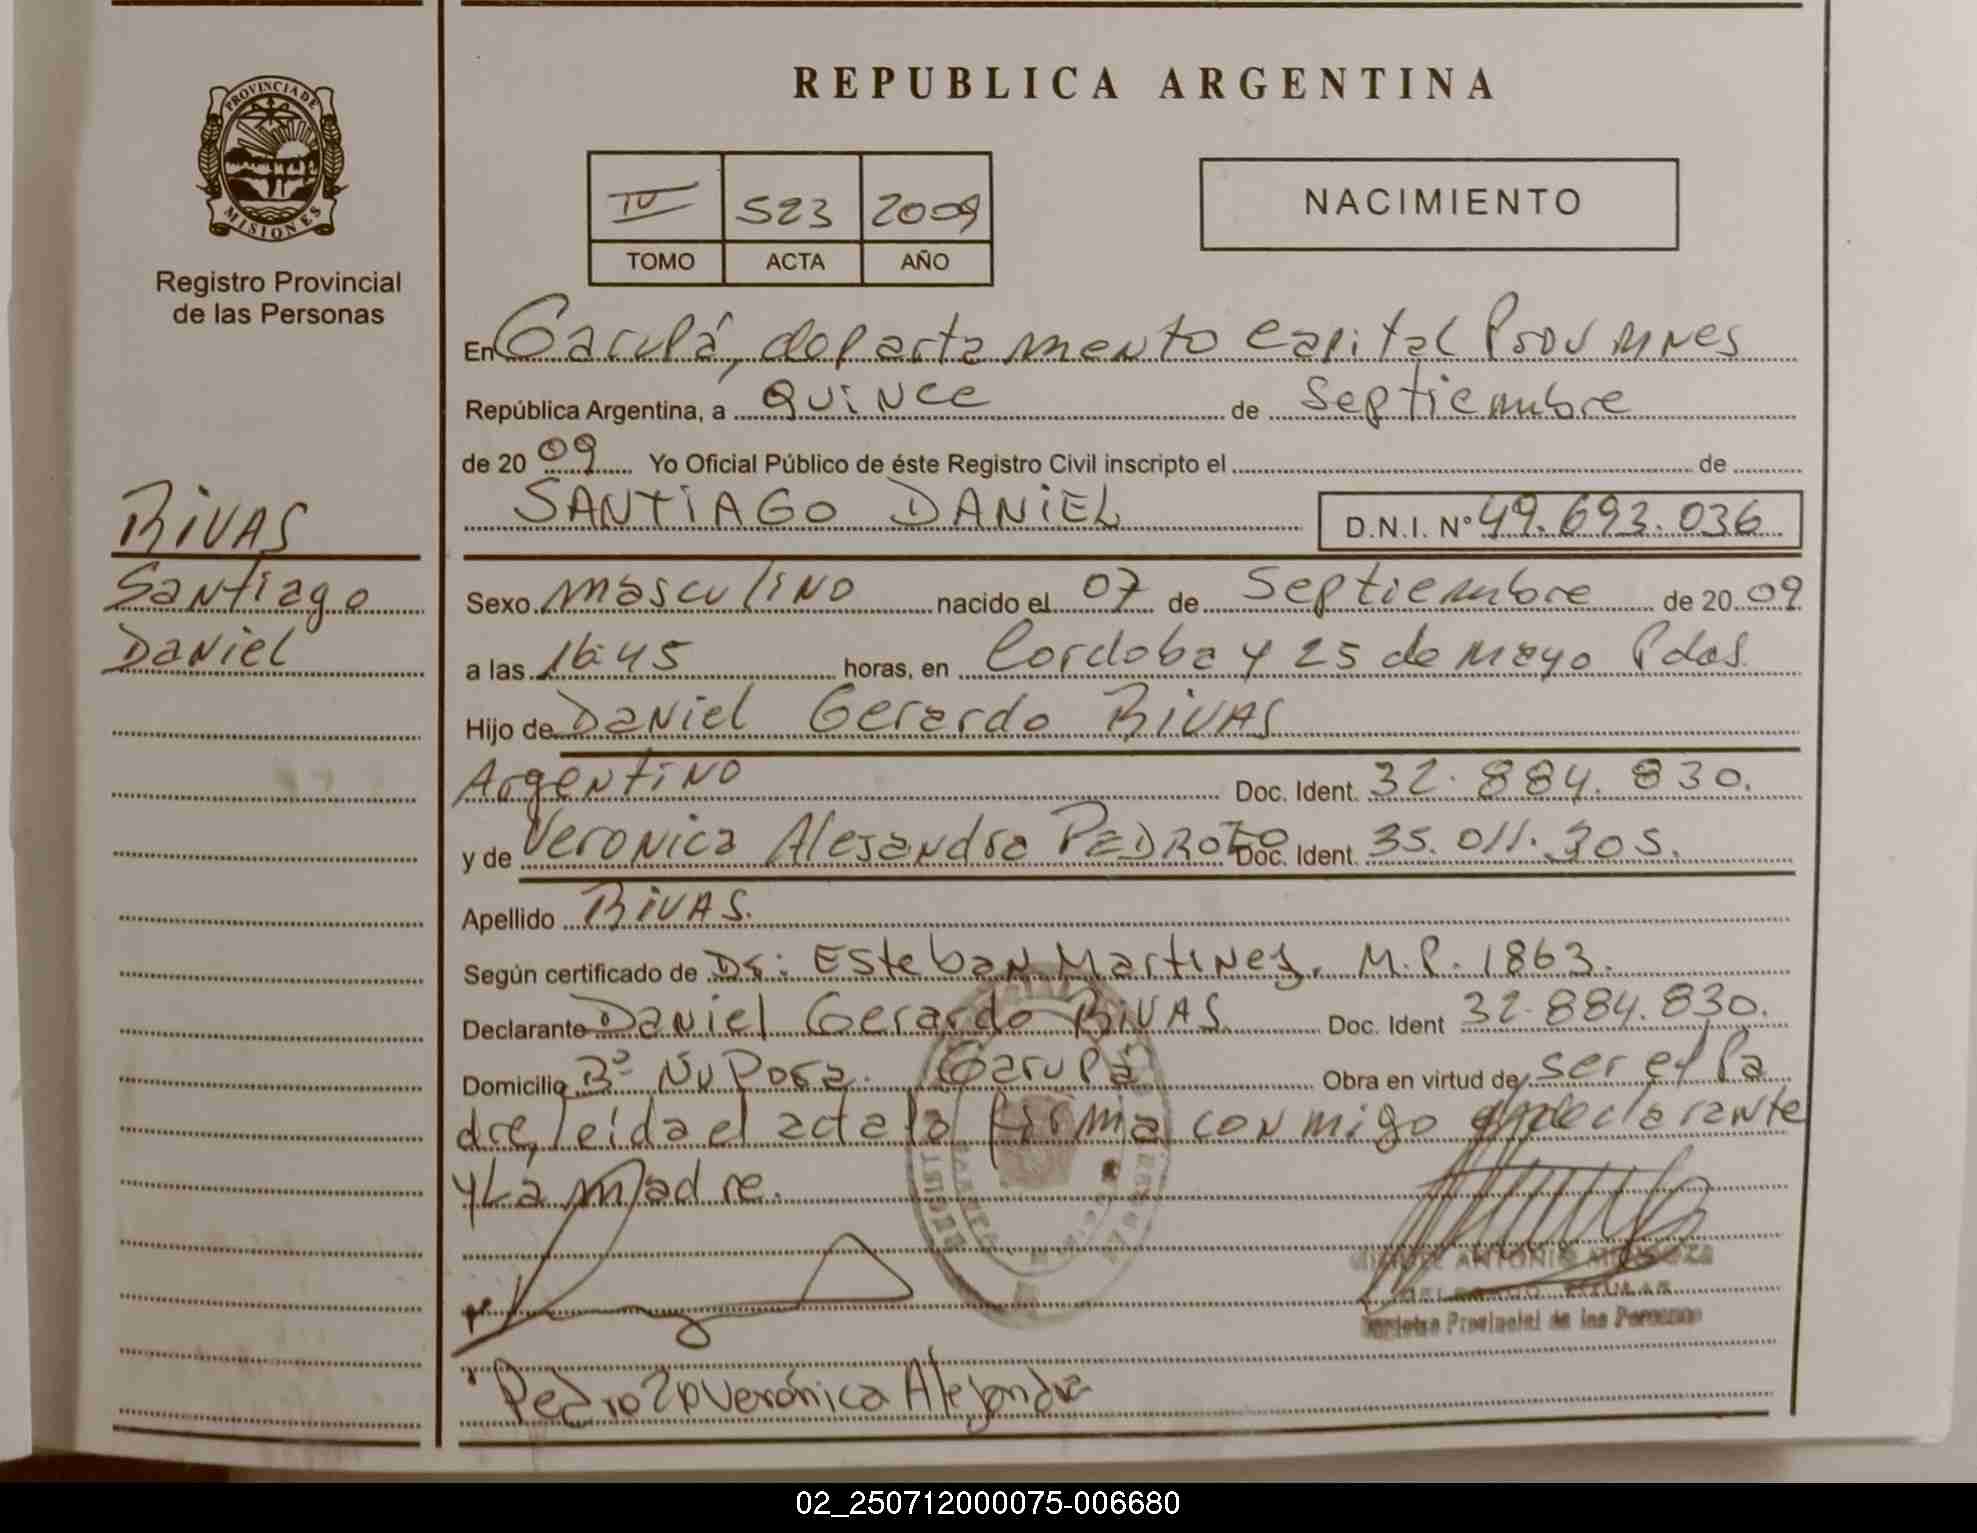 REPUBLICA ARGENTINA
PROVINCIA DE MISIONES
Registro Provincial
de las Personas
IV 523 2009
TOMO ACTA AÑO
NACIMIENTO
En Garupá, departamento Capital Prov Mnes
República Argentina, a quince de Septiembre
de 2009 Yo Oficial Público de éste Registro Civil inscripto el de
SANTIAGO DANIEL D.N.I. Nº 49.693.036
RIVAS
Santiago
Daniel
Sexo masculino nacido el 07 de Septiembre de 2009
a las 16:45 horas, en Cordoba y 25 de mayo Pdas.
Hijo de Daniel Gerardo RIVAS
Argentino Doc. Ident. 32.884.830.
y de Veronica Alejandra PEDROZO Doc. Ident. 35.011.305.
Apellido RIVAS.
Según certificado de Dr: Esteban Martines, M.P. 1863.
Declarante Daniel Gerardo RIVAS Doc. Ident 32.884.830.
Domicilio Bº Ñu Pora. Garupá Obra en virtud de ser el Pa
dre, leída el acta la firma conmigo declarante
y La Madre.
ANTONIO
TITULAR
Registro Provincial de las Personas
Pedrozo Verónica Alejandra
02_250712000075-006680